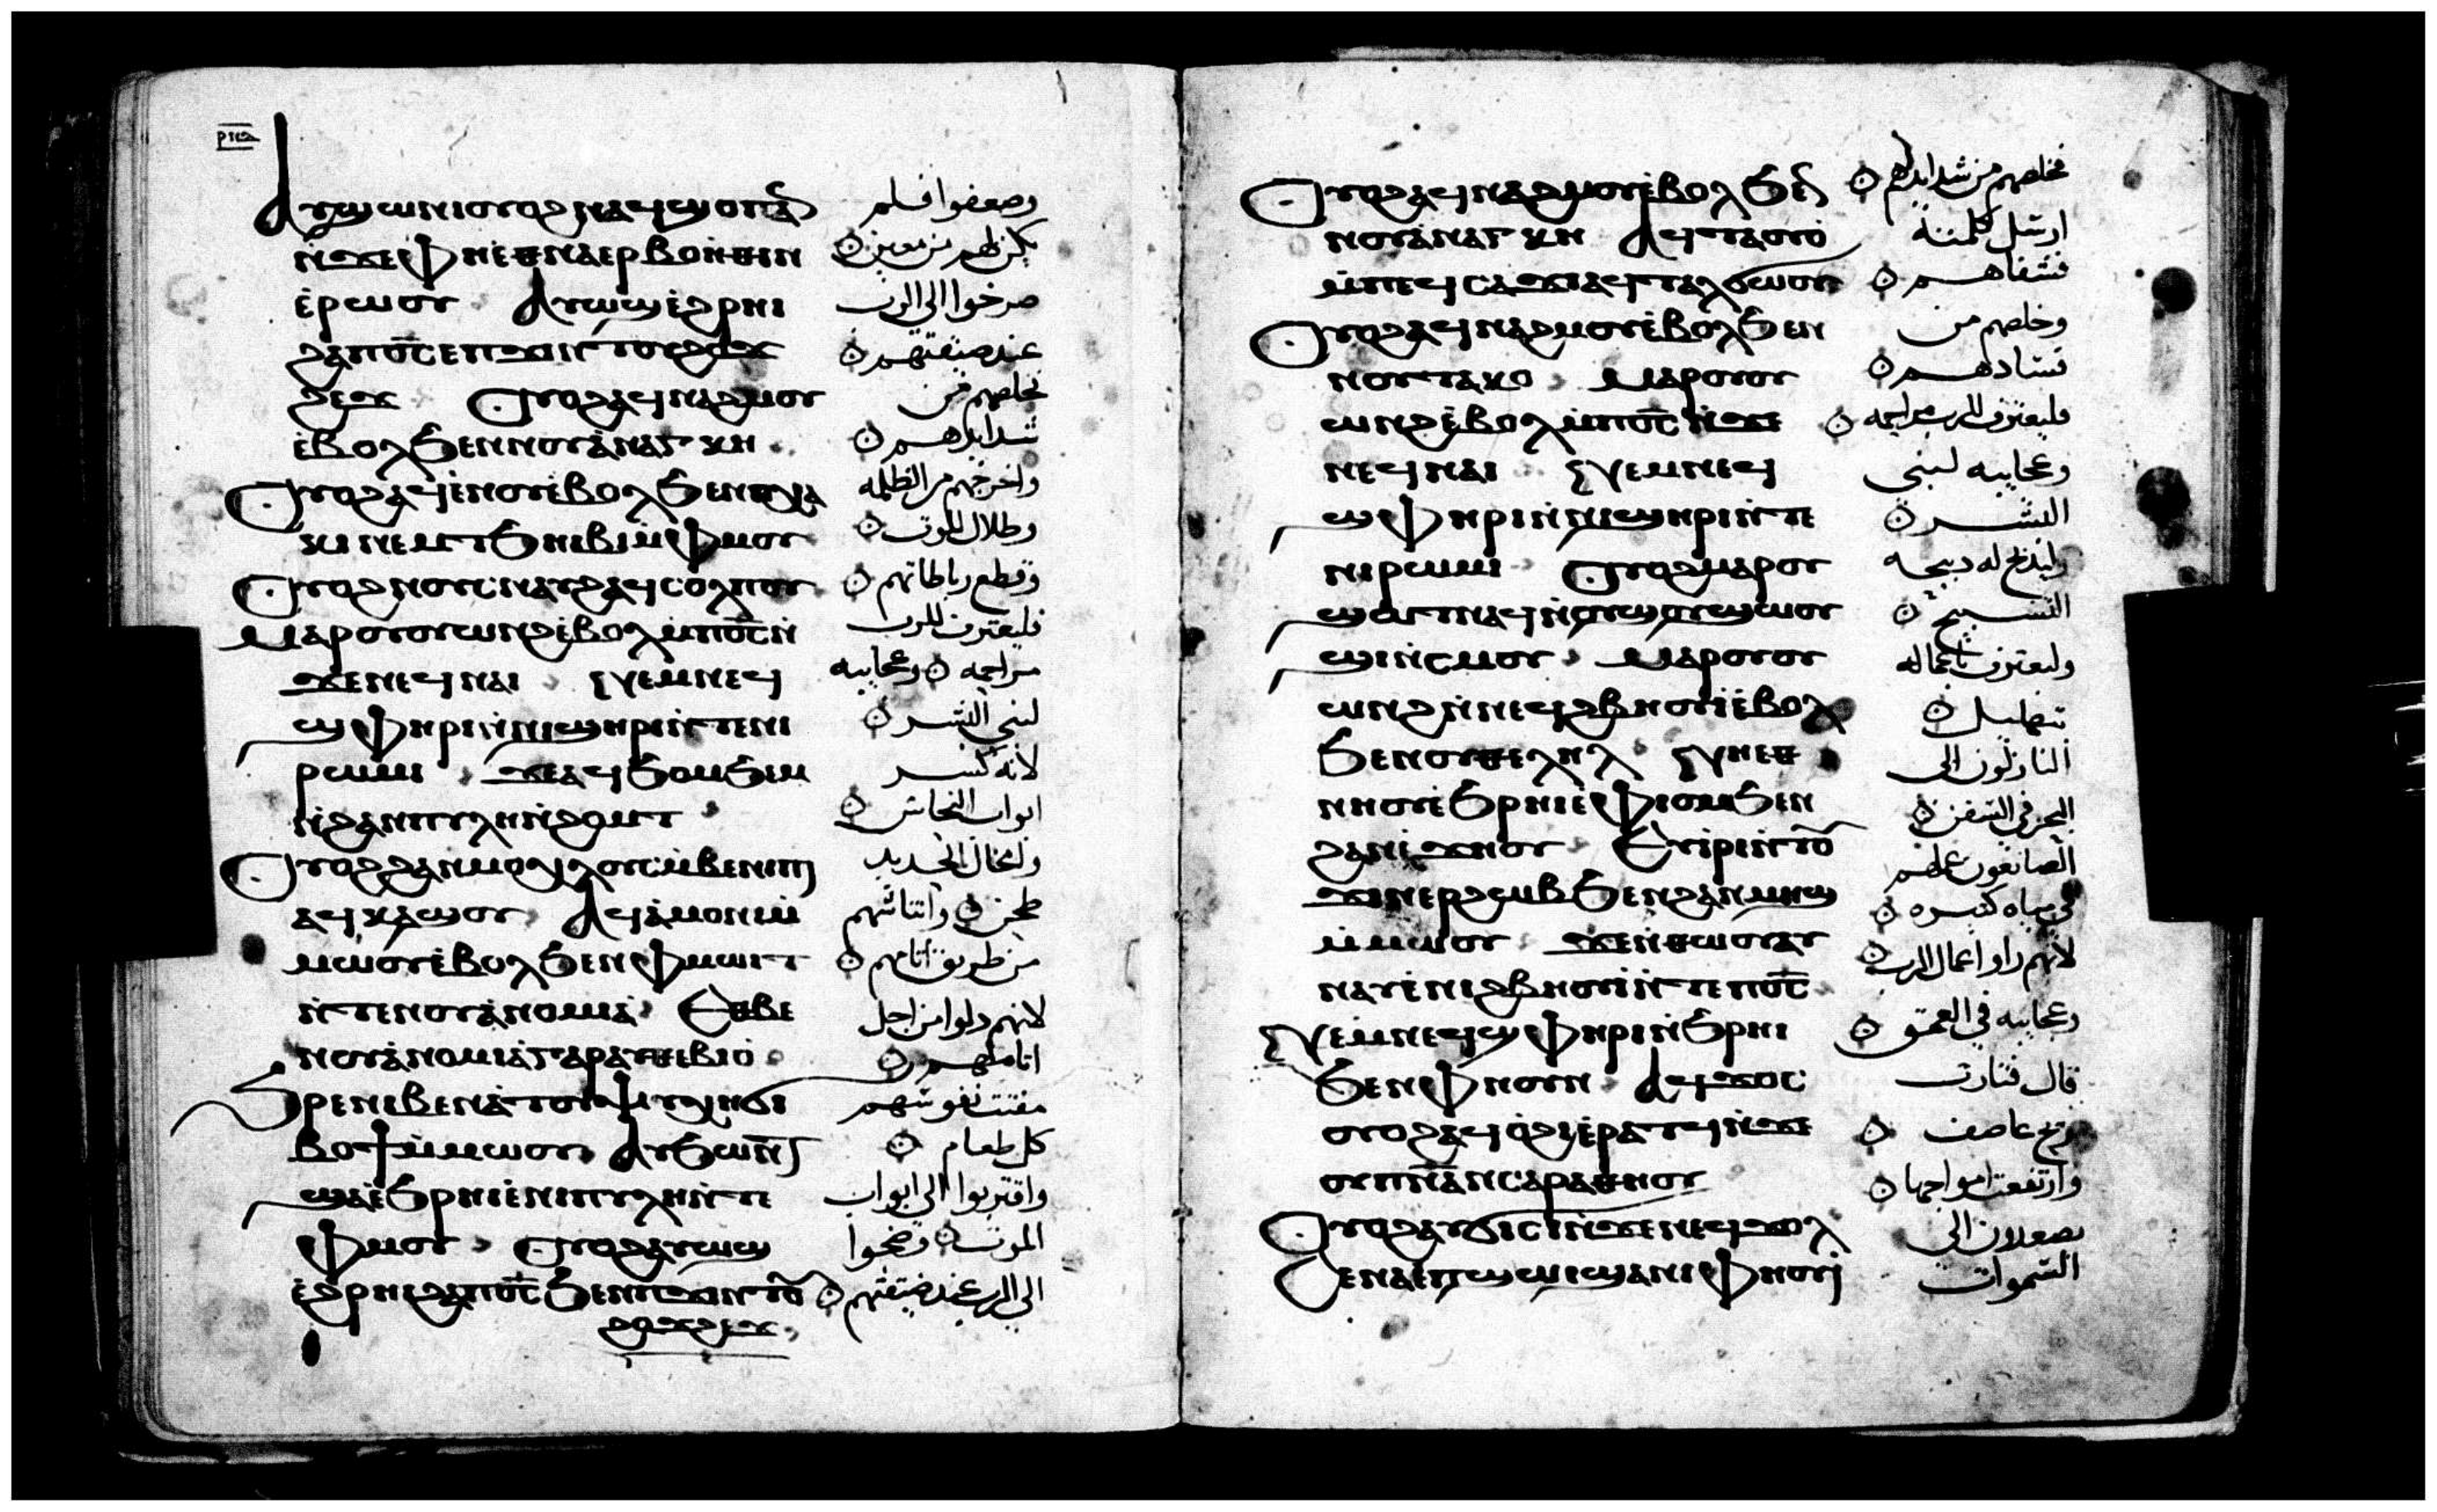 ⲁⲩϣⲱⲛⲓ ⲟⲩⲟϩ ⲛⲁϥϣⲟⲡ ⲁⲛ وضعفوا فلم
ⲛ̀ϫⲉ ⲫⲏⲉⲑⲛⲁⲉⲣⲃⲟⲏⲑⲓⲛ يكن لهم من معين
ⲉ̀ⲣⲱⲟⲩ ⲁⲩⲱϣ ⲉ̀ϩⲣⲏⲓ صرخوا الى الرب
ϩⲁ ⲡⲟ̅ⲥ̅ ⲉⲡϫⲓⲛⲧⲟⲩϩⲟϫ عند ضيقتهم
ϩⲉϫ ⲟⲩⲟϩ ⲁϥⲛⲁϩⲙⲟⲩ خلصهم من
ⲉ̀ⲃⲟⲗ ϧⲉⲛ ⲛⲟⲩⲁ̀ⲛⲁⲅⲕⲏ شدايدهم
ⲟⲩⲟϩ ⲁϥⲉⲛⲟⲩ ⲉ̀ⲃⲟⲗ ϧⲉⲛ ⲡⲭⲁ واخرجهم من الظلمه
ⲕⲓ ⲛⲉⲙ ⲧϧⲏⲓⲃⲓ ⲙ̀ⲫⲙⲟⲩ وظلال الموت
ⲟⲩⲟϩ ⲛⲟⲩⲥⲛⲁⲩϩ ⲁϥⲥⲟⲗⲡⲟⲩ وقطع رباطاتهم
ⲙⲁⲣⲟⲩⲟⲩⲱⲛϩ ⲉ̀ⲃⲟⲗ ⲙ̀ⲡⲟ̅ⲥ̅ ⲛ̀ فليعترف للرب
ϫⲉ ⲛⲉϥⲛⲁⲓ ⲛⲉⲙ ⲛⲉϥ مراحمه وعجايبه
ϣⲫⲏⲣⲓ ⲛ̀ⲛⲓϣⲏⲣⲓ ⲛ̀ⲧⲉ ⲛⲓ لبني البشر
ⲣⲱⲙⲓ ϫⲉ ⲁϥϧⲟⲙϧⲉⲙ لانه كسر
ⲛ̀ϩⲁⲛⲡⲩⲗⲏ ⲛ̀ϩⲟⲙⲧ ابواب النحاس
ⲟⲩⲟϩ ϩⲁⲛⲙⲟⲭⲗⲟⲥ ⲙ̀ⲃⲉⲛⲓⲡⲓ وامخال الحديد
ⲁϥⲕⲁϣⲟⲩ ⲁϥⲁ̀ⲙⲟⲛⲓ ⲙ̀ طحن
ⲙⲱⲟⲩ ⲉ̀ⲃⲟⲗ ϧⲉⲛ ⲫⲙⲱⲓⲧ من طريق اثامهم
ⲛ̀ⲧⲉ ⲛⲟⲩⲁ̀ⲛⲟⲙⲓⲁ ⲉⲑⲃⲉ لانهم ذلوا من اجل
ⲛⲟⲩⲁ̀ⲛⲟⲙⲓⲁ ⲅⲁⲣ ⲁⲩⲑⲉⲃⲓⲟ اثامهم
ϧⲣⲉ ⲛⲓⲃⲉⲛ ⲁ̀ⲧⲟⲩⲯⲩⲭⲏ ϭⲓ مقتت نفوسهم
ⲃⲟϯ ⲙ̀ⲙⲱⲟⲩ ⲁⲩϧⲱⲛⲧ كل طعام
ϣⲁ ⲉ̀ϧⲣⲏⲓ ⲉ̀ⲛⲓⲡⲩⲗⲏ ⲛ̀ⲧⲉ واقتربوا الى ابواب
ⲫⲙⲟⲩ ⲟⲩⲟϩ ⲁⲩⲱϣ الموت
ⲉ̀ϩⲣⲏⲓ ϩⲁ ⲡⲟ̅ⲥ̅ ϧⲉⲛ ⲡϫⲓⲛⲧⲟⲩ الى الرب عند ضيقتهم
ϩⲟϫϩⲉϫ
ⲟⲩⲟϩ ⲁϥⲛⲁϩⲙⲟⲩ ⲉ̀ⲃⲟⲗ ϧⲉⲛ فخلصهم من شدايدهم
ⲛⲟⲩⲁ̀ⲛⲁⲅⲕⲏ ⲁϥⲧⲁⲟⲩⲟ ارسل كلمته
ⲙ̀ⲡⲉϥⲥⲁϫⲓ ⲁϥⲧⲁⲗϭⲱⲟⲩ فشفاهم
ⲟⲩⲟϩ ⲁϥⲛⲁϩⲙⲟⲩ ⲉ̀ⲃⲟⲗ ϧⲉⲛ وخلصهم من
ⲛⲟⲩⲧⲁⲕⲟ ⲙⲁⲣⲟⲩⲟⲩ فسادهم
ⲱⲛϩ ⲉ̀ⲃⲟⲗ ⲙ̀ⲡⲟ̅ⲥ̅ ⲛ̀ϫⲉ فليعترف للرب مراحمه
ⲛⲉϥⲛⲁⲓ ⲛⲉⲙ ⲛⲉϥ وعجايبه لبني
ϣⲫⲏⲣⲓ ⲛ̀ⲛⲓϣⲏⲣⲓ ⲛ̀ⲧⲉ البشر
ⲛⲓⲣⲱⲙⲓ ⲟⲩⲟϩ ⲙⲁⲣⲟⲩ وليذبح له ذبيحه
ϣⲱⲧ ⲛⲁϥ ⲛ̀ⲟⲩϣⲟⲩϣⲱⲟⲩ التسبيح
ϣⲓ ⲛ̀ⲥⲙⲟⲩ ⲙⲁⲣⲟⲩⲟⲩ وليعترف باعماله
ⲱⲛϩ ⲛ̀ⲛⲉϥϩⲃⲏⲟⲩⲓ ⲉ̀ⲃⲟⲗ بتهليل
ϧⲉⲛ ⲟⲩⲑⲉⲗⲏⲗ ⲛⲏⲉⲑ النازلون الى
ⲛⲏⲟⲩ ⲉ̀ϧⲣⲏⲓ ⲉ̀ⲫⲓⲟⲙ ϧⲉⲛ البحر في السفن
ϩⲁⲛⲉϫⲏⲟⲩ ⲉⲩⲓⲣⲓ ⲛ̀ⲧⲟⲩ الصانعون عملهم
ϫⲓⲛⲉⲣϩⲱⲃ ϧⲉⲛ ϩⲁⲛⲙⲏϣ في مياه كثيره
ⲙ̀ⲙⲱⲟⲩ ϫⲉ ⲛ̀ⲑⲱⲟⲩ ⲁⲩ لانهم راوا اعمال الرب
ⲛⲁⲩ ⲉ̀ⲛⲓϩⲃⲏⲟⲩⲓ ⲛ̀ⲧⲉ ⲡⲟ̅ⲥ̅
ⲛⲉⲙ ⲛⲉϥϣⲫⲏⲣⲓ ⲛ̀ϧⲣⲏⲓ وعجايبه في العمق
ϧⲉⲛ ⲫⲛⲟⲩⲛ ⲁϥϫⲟⲥ قال فثارت
ⲟⲩⲟϩ ⲁϥⲟ̀ϩⲓ ⲉ̀ⲣⲁⲧϥ ⲛ̀ϫⲉ ريح عاصف
ⲟⲩⲡ̅ⲛ̅ⲁ̅ ⲛ̀ⲥⲁⲣⲁⲑⲏⲟⲩ وارتفعت امواجها
ⲟⲩⲟϩ ⲁⲩϭⲓⲥⲓ ⲛ̀ϫⲉ ⲛⲉϥϫⲟⲗ يصعدون الى
ⲥⲉⲛⲁ ⲉ̀ⲡϣⲱⲓ ϣⲁ ⲛⲓⲫⲏⲟⲩⲓ السموات